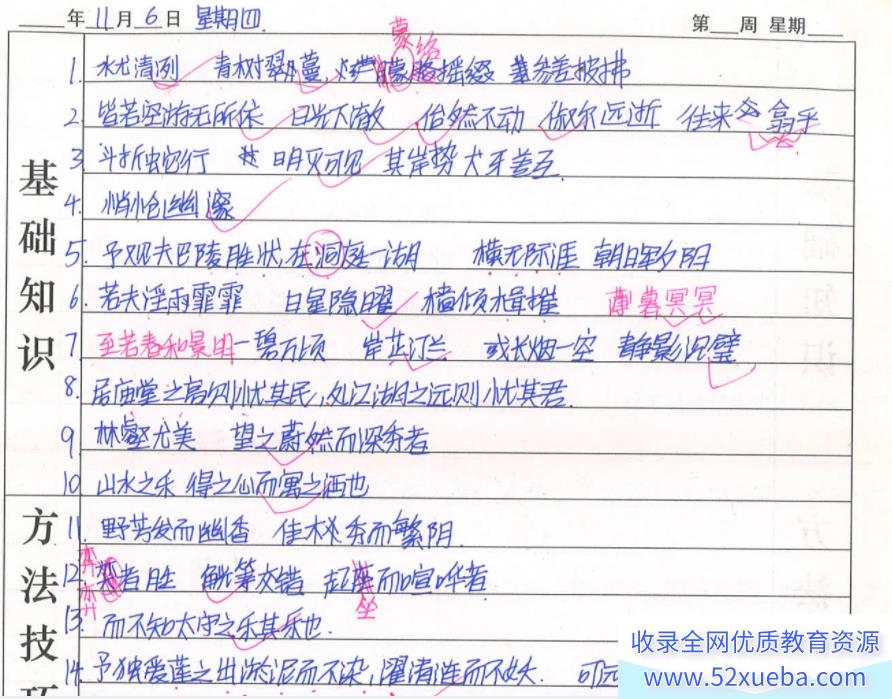 ___年11月6日 星期四 第___周 星期___
蒙络
1. 水尤清冽 青树翠蔓, 蒙络摇缀 参差披拂
2. 皆若空游无所依 日光下澈 佁然不动 俶尔远逝 往来翕乎
3. 斗折蛇行 明灭可见 其岸势犬牙差互.
基础知识
4. 悄怆幽邃
5. 予观夫巴陵胜状, 在洞庭一湖 横无际涯 朝晖夕阴
6. 若夫淫雨霏霏 日星隐曜 樯倾楫摧 薄暮冥冥
7. 至若春和景明 一碧万顷 岸芷汀兰 或长烟一空 静影沉璧
8. 居庙堂之高则忧其民, 处江湖之远则忧其君.
9. 林壑尤美 望之蔚然而深秀者
10. 山水之乐 得之心而寓之酒也
方法技
11. 野芳发而幽香 佳木秀而繁阴.
弈
12. 者胜 觥筹交错 起座而喧哗者
弈 坐
13. 而不知太守之乐其乐也.
14. 予独爱莲之出淤泥而不染, 濯清涟而不妖. 可远
收录全网优质教育资源
www.52xueba.com